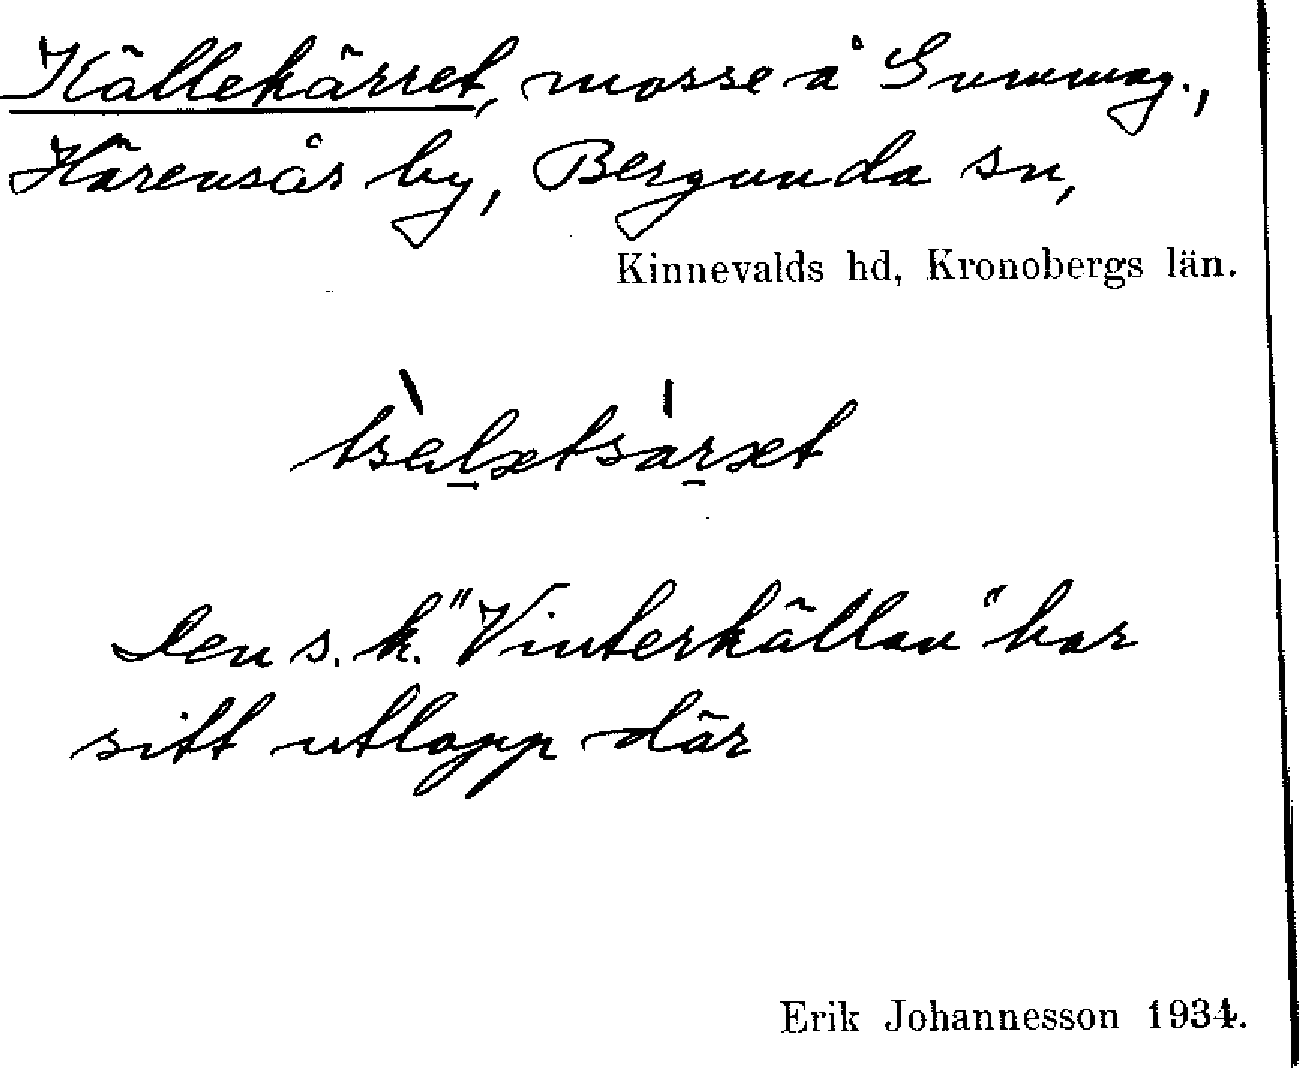 Källekärret, mosse å Summag.,
Härensås by, Bergunda sn,
Kinnevalds hd, Kronobergs län.
Den s.k. "Vinterkällan" har
sitt utlopp där
Erik Johannesson 1934.